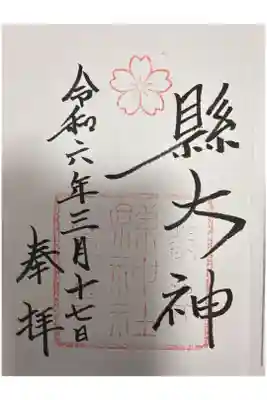 縣大神
令和六年三月十七日
奉拝